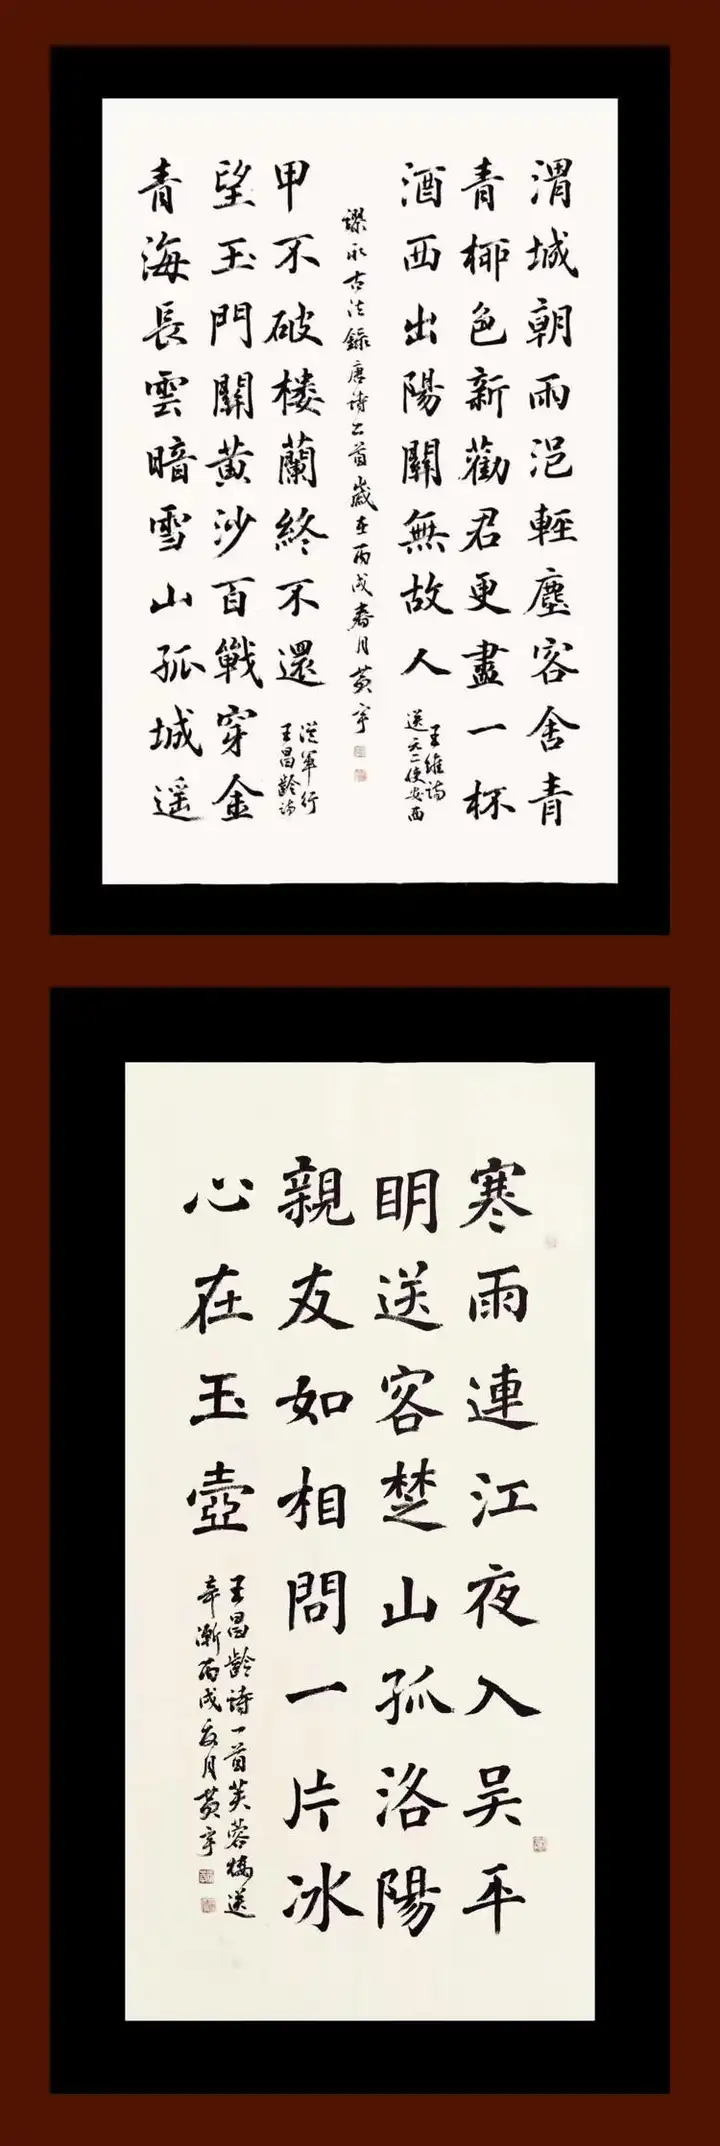 渭城朝雨浥輕塵客舍青
青柳色新勸君更盡一杯
酒西出陽關無故人
王維诗
送元二使安西
青海長雲暗雪山孤城遥
望玉門關黄沙百戰穿金
甲不破楼蘭終不還
從軍行
王昌齡诗
謬承古法録唐诗二首歲在丙戌春月黄宇
寒雨連江夜入吴平
明送客楚山孤洛陽
親友如相問一片冰
心在玉壺
王昌齡诗一首芙蓉楼送
辛漸丙戌夏月黄宇